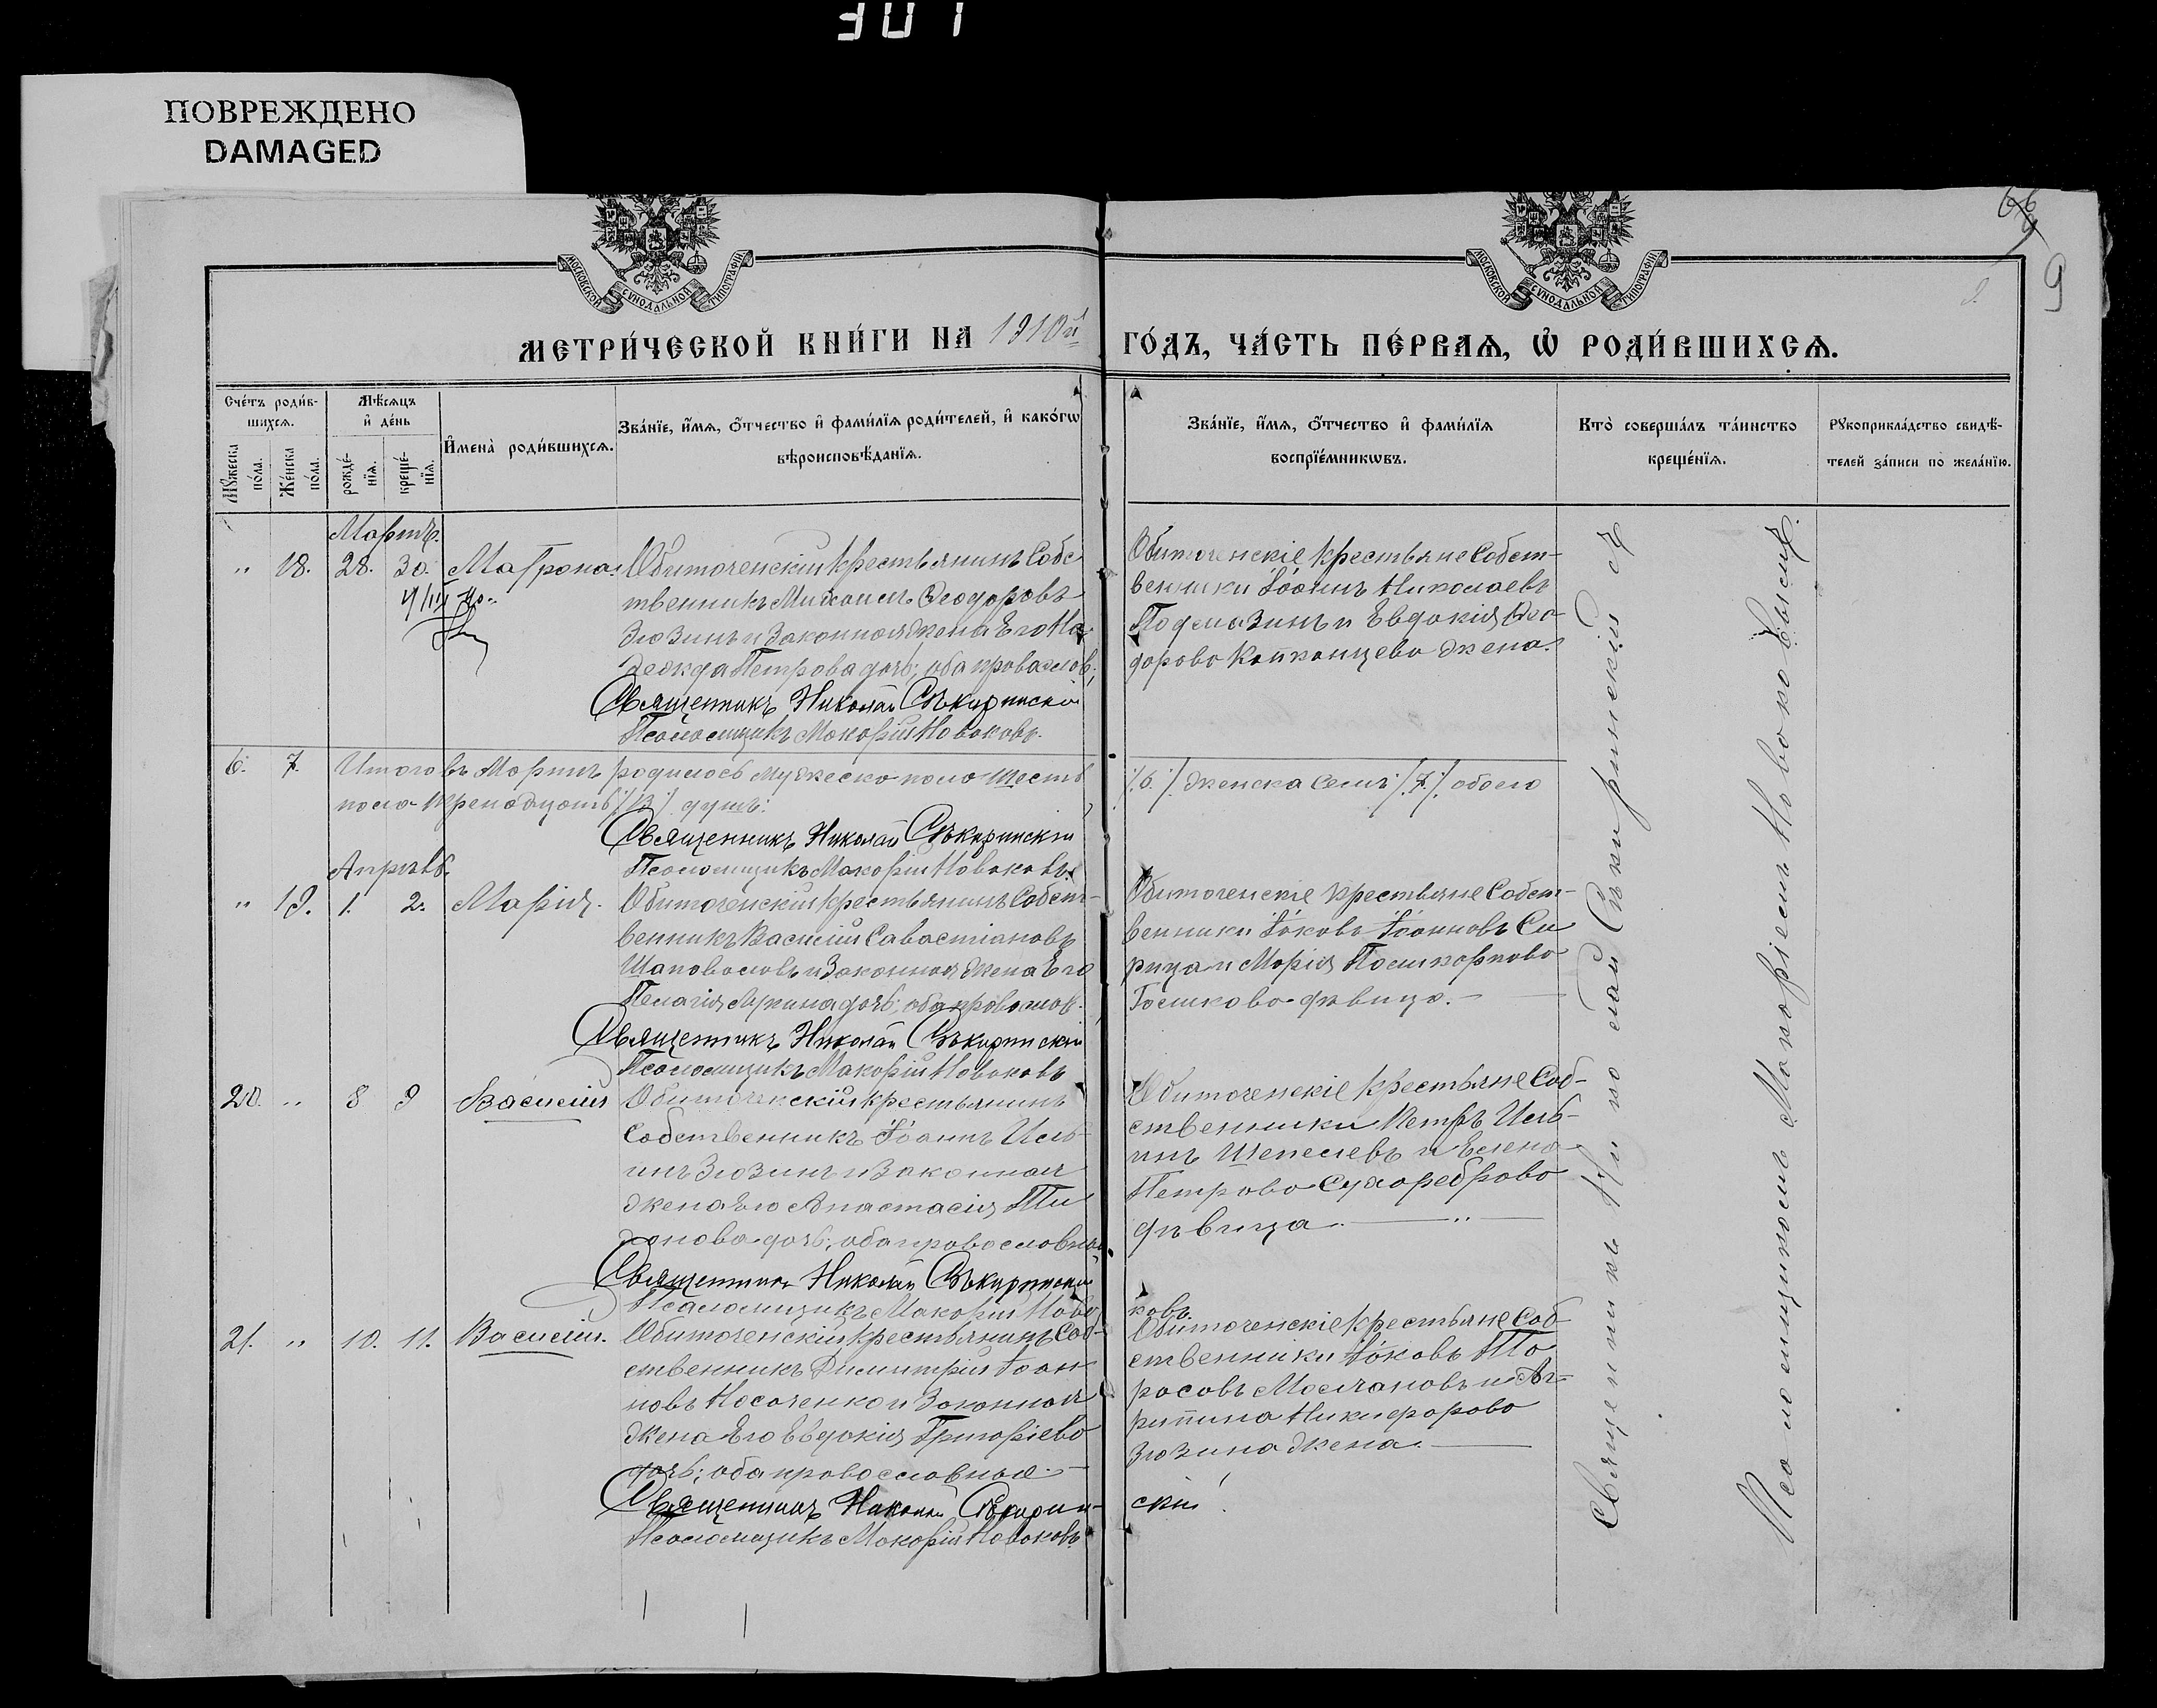 301
ПОВРЕЖДЕНО
DAMAGED
66
9
МОСКОВСКОЙ СѴНОДАЛЬНОЙ ТИПОГРАФІИ
МОСКОВСКОЙ СѴНОДАЛЬНОЙ ТИПОГРАФІИ
МЕТРИ́ЧЕСКОЙ КНИ́ГИ НА 1910й ГО́ДЪ, ЧА́СТЬ ПЕ́РВАѦ, Ѡ҆ РОДИ́ВШИХСѦ.
Сче́тъ роди́в-
шихсѧ.
Мꙋ́жеска по́ла.
Же́нска по́ла.
Мѣ́сѧцъ
и҆ де́нь
рожде́-
нїѧ.
креще́-
нїѧ.
И҆мена̀ роди́вшихсѧ.
Зва́нїе, и҆́мѧ, ѻ҆́тчество и҆ фами́лїѧ роди́телей, и҆ како́гѡ
вѣроисповѣ́данїѧ.
Зва́нїе, и҆́мѧ, ѻ҆́тчество и҆ фами́лїѧ
воспрїе́мникѡвъ.
Кто̀ соверша́лъ та́инство
креще́нїѧ.
Рꙋкоприкла́дство свидѣ́-
телей за́писи по жела́нїю.
Мартъ.
" 18. 28. 30. Матрона. Обиточенскій крестьянинъ Собс
твенникъ Михаилъ Ѳеодоровъ
Зюзинъ и Законная жена Его На
дежда Петрова дочь; оба правослов.
Священникъ Николай Сѣкиринскій
Псаломщикъ Макарій Новаковъ.
Обиточенскіе крестьяне Собст-
венники Іоаннъ Николаевъ
Подмазинъ и Евдокія Ѳео-
дорова Капканцева жена.
6. 7. Итого въ Мартѣ родилось мужеска пола шесть /6./ женска семь /7./ обоего
пола тренадцать /13/ душъ.
Священникъ Николай Сѣкиринскій
Псаломщикъ Макарій Новаковъ.
Апрѣль.
" 19. 1. 2. Марія. Обиточенскій крестьянинъ Собст-
венникъ Василій Савастіановъ
Шаповаловъ и Законная жена Его
Пелагія Лукина дочь; оба правослов.
Священникъ Николай Сѣкиринскій
Псаломщикъ Макарій Новаковъ
Обиточенскіе крестьяне Собст-
венники Іаковъ Іоанновъ Си
рица и Марія Поликарпова
Голикова дѣвица.
20. " 8 9 Василій Обиточенскій крестьянинъ
Собственникъ Іоаннъ Иль-
инъ Зюзинъ и Законная
жена Его Анастасія Ти
хонова дочь; оба православная
Священникъ Николай Сѣкиринскій
Псаломщикъ Макарій Нова
Обиточенскіе крестьяне Соб-
ственники Петръ Иль-
инъ Шепелевъ и Елена
Петрова Сухореброва
дѣвица. "
ковъ.
21. " 10. 11. Василій. Обиточенскій крестьянинъ Соб-
ственникъ Димитрій Іоан
новъ Носаченко и Законная
жена Его Евдокія Григоріева
дочь; оба православная.
Священникъ Николай Сѣкирин-
скій.
Псаломщикъ Макарій Новаковъ.
Обиточенскіе крестьяне Соб-
ственники Іаковъ Та
расовъ Молчановъ и Аг-
рипина Никифорова
Зюзина жена.
Священникъ Николай Сѣкиринскій съ
Псаломщикомъ Макаріемъ Новаковымъ.